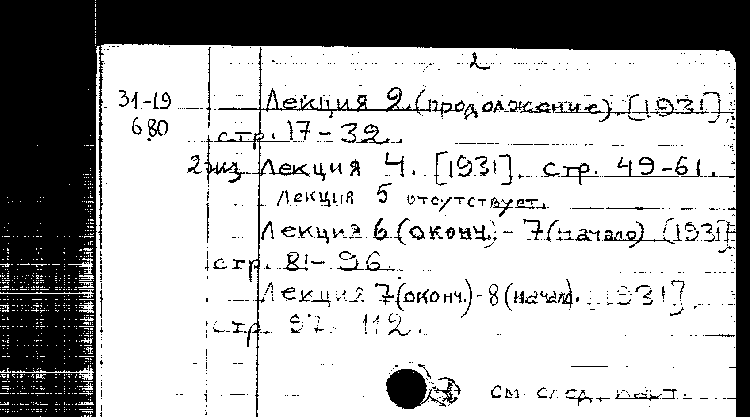 2
31-19 Лекция 2 (продолжение). [1931],
680 стр. 17-32.
2 экз Лекция 4. [1931], стр. 49-61.
Лекция 5 отсутствует.
Лекция 6 (оконч.) - 7 (начало) [1931]
стр. 81-96.
Лекция 7 (оконч.) - 8 (начал). [1931],
стр. 97-112.
см. след. карт.